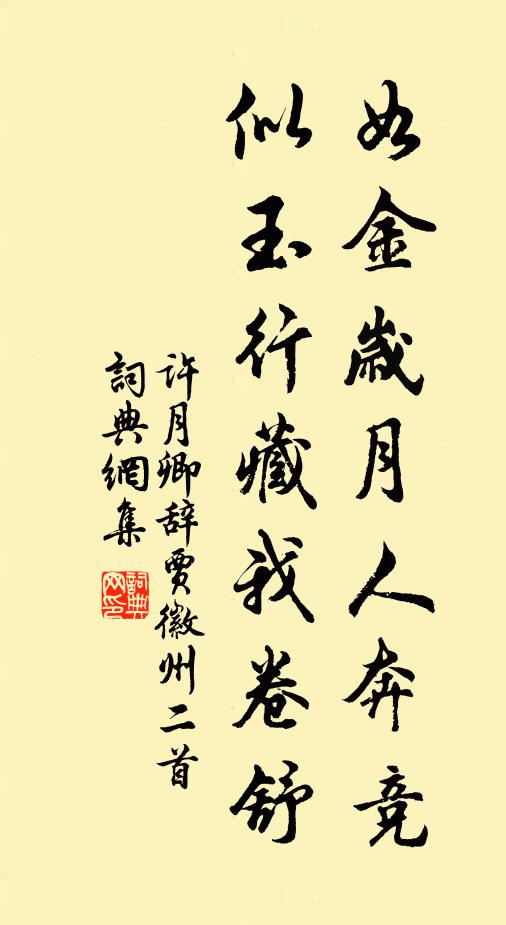 如金歲月人奔竞
似玉行藏我卷舒
許月卿辞賈徽州二首
詞典網集
詞典网印